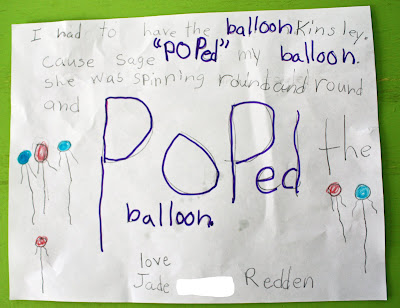 I had to have the balloon Kinsley.
cause sage "POPed" my balloon.
she was spinning round and round
and POPed the
balloon.
love
Jade Redden